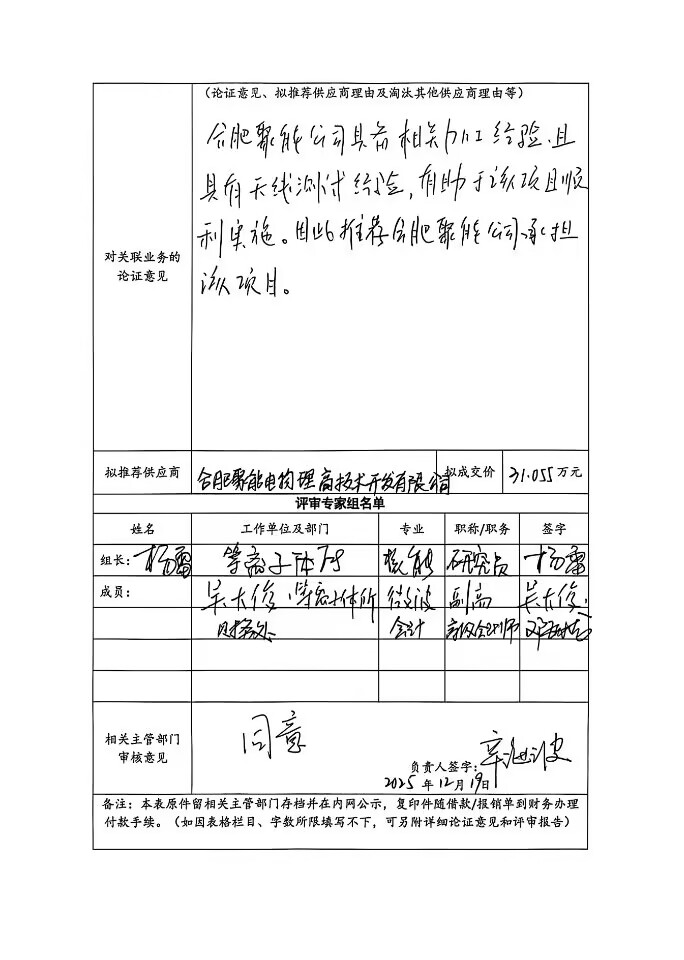 （论证意见、拟推荐供应商理由及淘汰其他供应商理由等）
合肥聚能公司具备相关加工经验，且
具有天线测试经验，有助于该项目顺
利实施。因此推荐合肥聚能公司承担
该项目。
对关联业务的
论证意见
拟推荐供应商 合肥聚能电物理高技术开发有限公司 拟成交价 31.055 万元
评审专家组名单
姓名 工作单位及部门 专业 职称/职务 签字
组长：杨雷 等离子体所 核能 研究员 杨雷
成员： 吴大俊 等离子体所 微波 副高 吴大俊
财务处 会计 高级会计师
相关主管部门
审核意见
同意
负责人签字：
2025 年 12 月 19 日
备注：本表原件留相关主管部门存档并在内网公示，复印件随借款/报销单到财务办理
付款手续。（如因表格栏目、字数所限填写不下，可另附详细论证意见和评审报告）